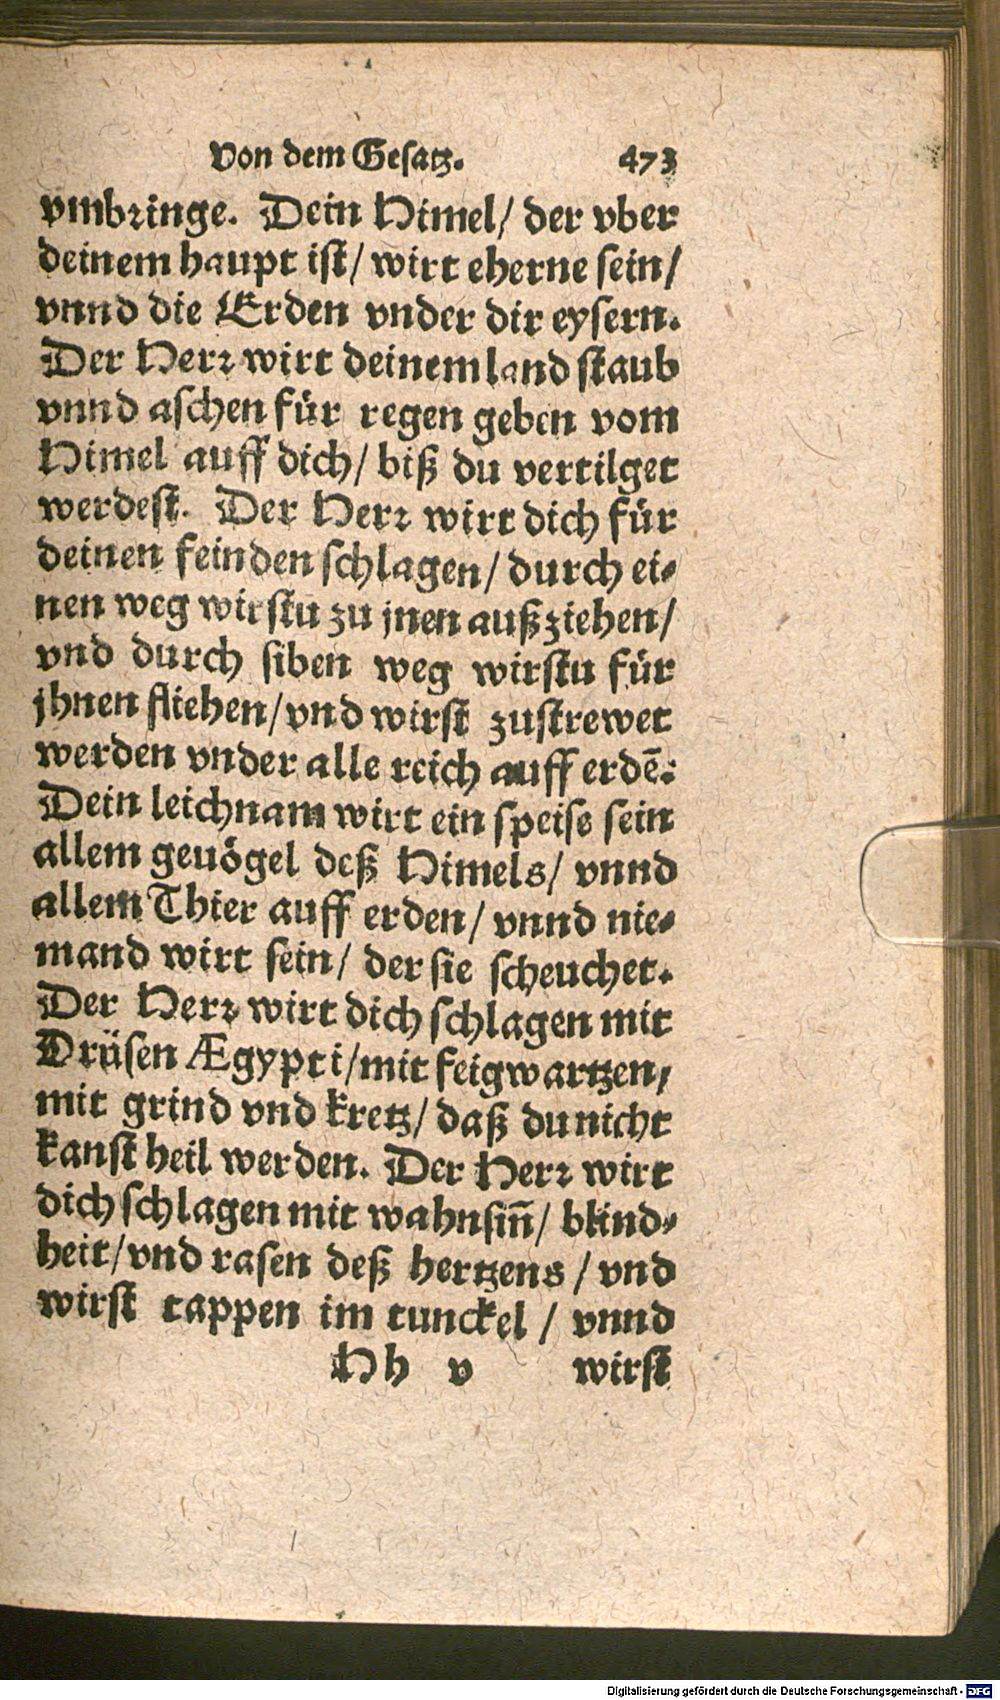 Von dem Gesatz. 473
vmbringe. Dein Himel/ der vber
deinem haupt ist/ wirt eherne sein/
vnnd die Erden vnder dir eysern.
Der Herr wirt deinem land staub
vnnd aschen für regen geben vom
Himel auff dich/ biß du vertilget
werdest. Der Herr wirt dich für
deinen feinden schlagen/ durch ei-
nen weg wirstu zu jnen außziehen/
vnd durch siben weg wirstu für
jhnen fliehen/ vnd wirst zustrewet
werden vnder alle reich auff erdē:
Dein leichnam wirt ein speise sein
allem geuögel deß Himels/ vnnd
allem Thier auff erden/ vnnd nie-
mand wirt sein/ der sie scheuchet.
Der Herr wirt dich schlagen mit
Drüsen Ægypti/ mit feigwartzen,
mit grind vnd kretz/ daß du nicht
kanst heil werden. Der Herr wirt
dich schlagen mit wahnsiñ/ blind-
heit/ vnd rasen deß hertzens / vnd
wirst tappen im tunckel / vnnd
Hh v wirst
Digitalisierung gefördert durch die Deutsche Forschungsgemeinschaft - DFG